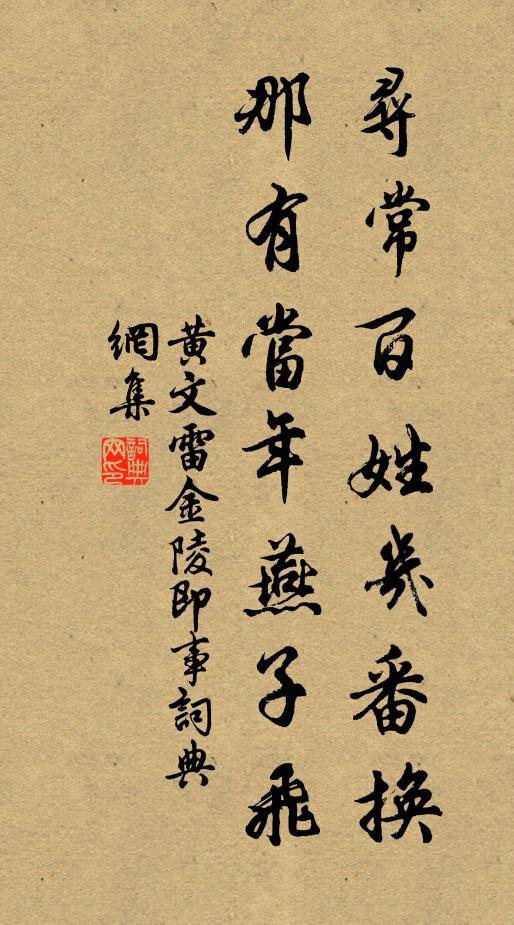 尋常百姓幾番換
那有當年燕子飛
黄文雷金陵即事詞典
網集
詞典
网印